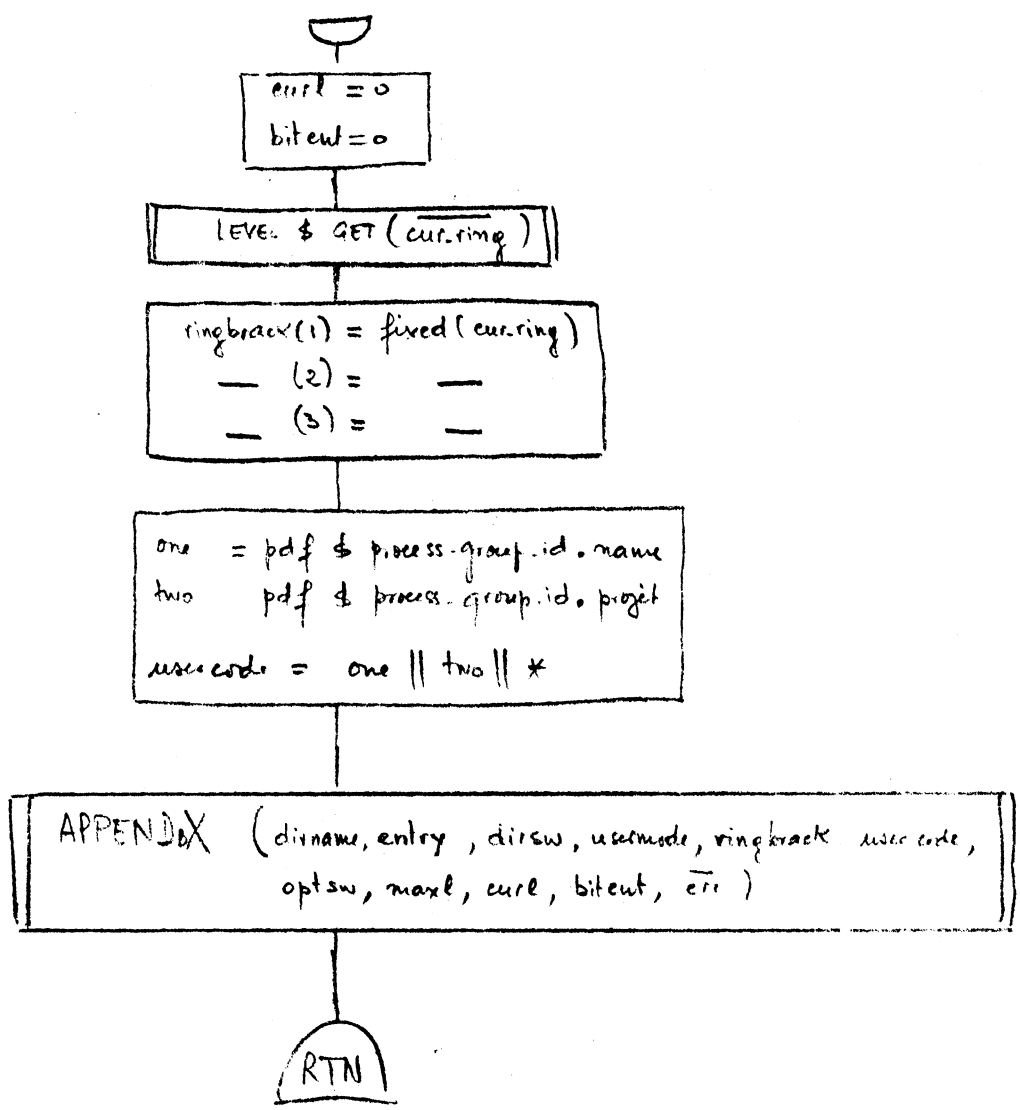 curl = 0
bitcnt = 0
LEVEL $ GET (cur-ring)
ringbrack(1) = fixed (cur-ring)
— (2) = —
— (3) = —
one = pdf $ process-group-id. name
two pdf $ process-group-id. projet
usercode = one || two || *
APPENDX (dirname, entry, dirsw, usermode, ringbrack usercode,
optsw, maxl, curl, bitcnt, err)
RTN